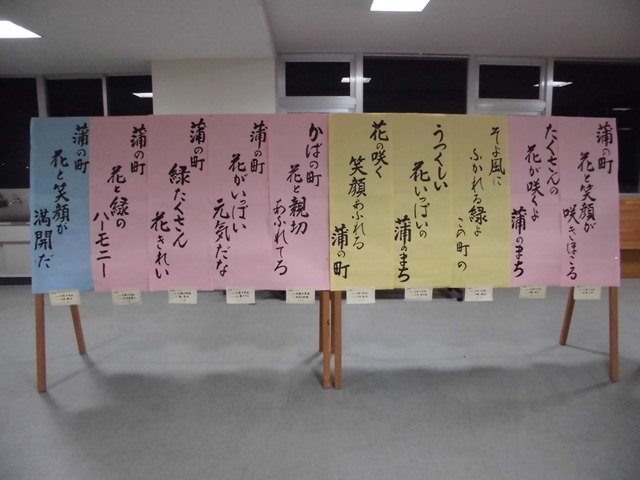 蒲の町
花と笑顔が
咲きほこる
たくさんの
花が咲くよ
蒲のまち
そよ風に
ふかれる緑よ
この町の
うつくしい
花いっぱいの
蒲のまち
花の咲く
笑顔あふれる
蒲の町
かばの町
花と親切
あふれてる
蒲の町
花がいっぱい
元気だな
蒲の町
緑たくさん
花きれい
蒲の町
花と緑の
ハーモニー
蒲の町
花と笑顔が
満開だ